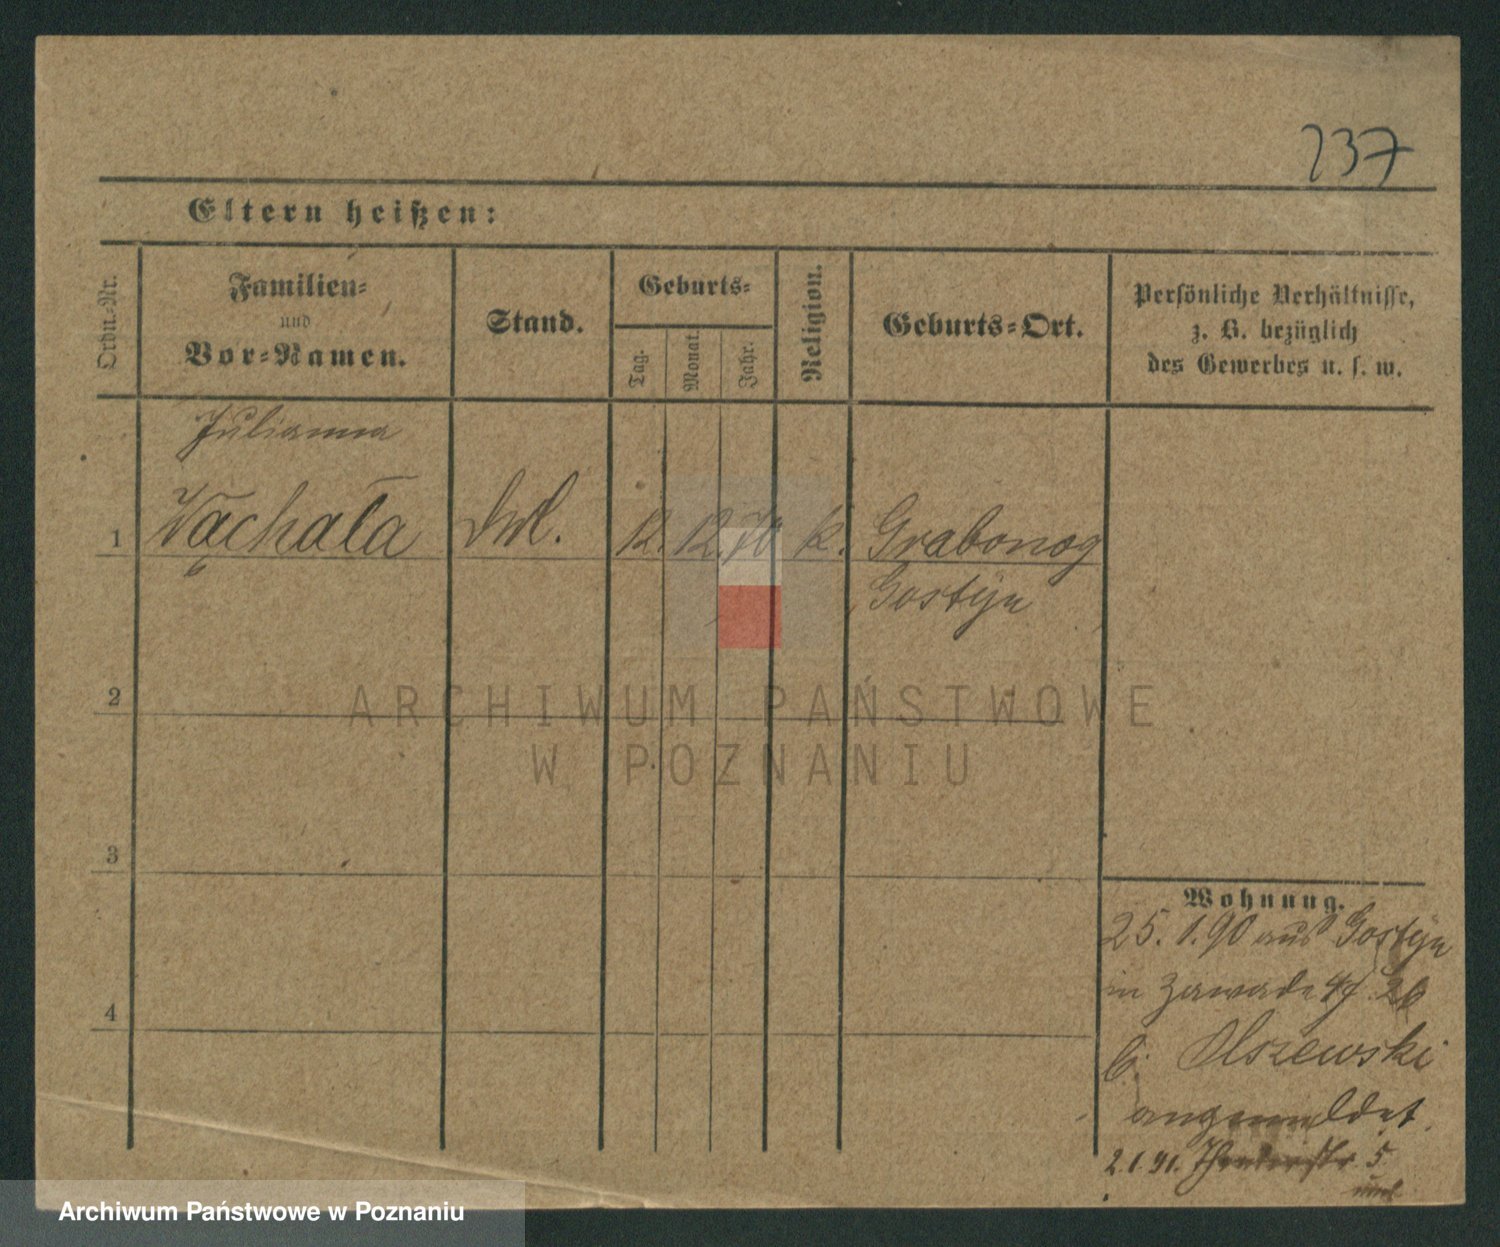 237
Eltern heißen:
Ordn.-Nr.
Familien-
und
Vor-Namen.
Stand.
Geburts-
Tag.
Monat.
Jahr.
Religion.
Geburts-Ort.
Persönliche Verhältnisse,
z. B. bezüglich
des Gewerbes u. s. w.
Julianna
1 Wąchała 12. 12. 70 k. Grabonog
Gostyn
2
ARCHIWUM PAŃSTWOWE
W POZNANIU
3
4
Wohnung.
25. 1. 90 aus Gostyn
in Zawade 26
b. Olszewski
angemeldet.
2.1.91. 5
Archiwum Państwowe w Poznaniu